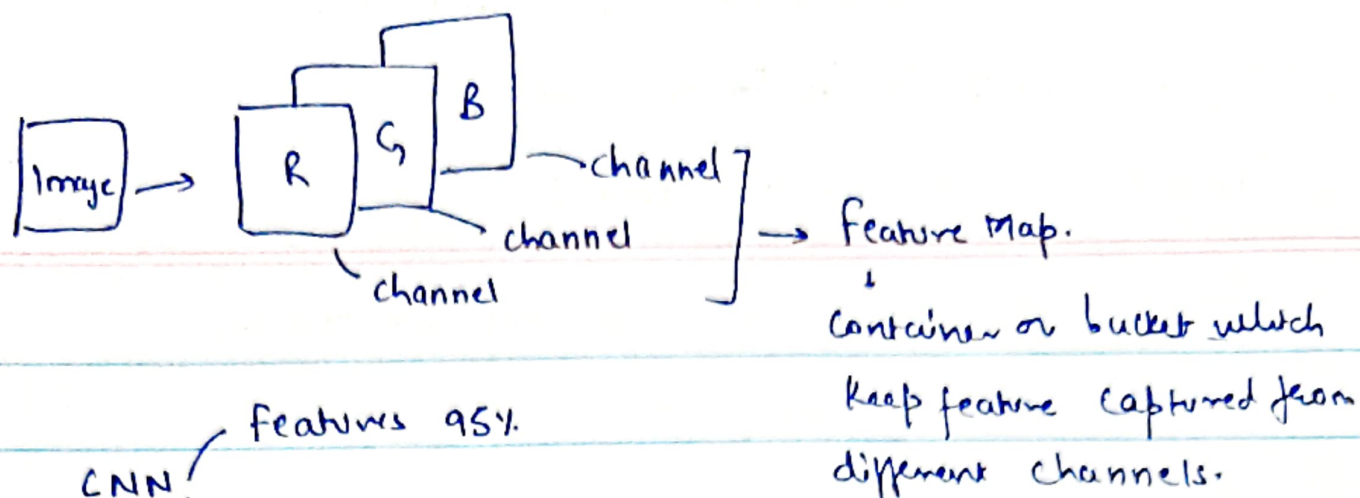 Image
R
G
B
channel
channel
channel
Feature Map.
container or bucket which
keep feature captured from
different channels.
features 95%
CNN